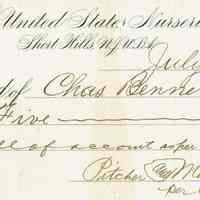 United States Nurseri
Short Hills, N.J. U.S.A.
July
of Chas Benne
Five
of account as per
Pitcher & Ma
per